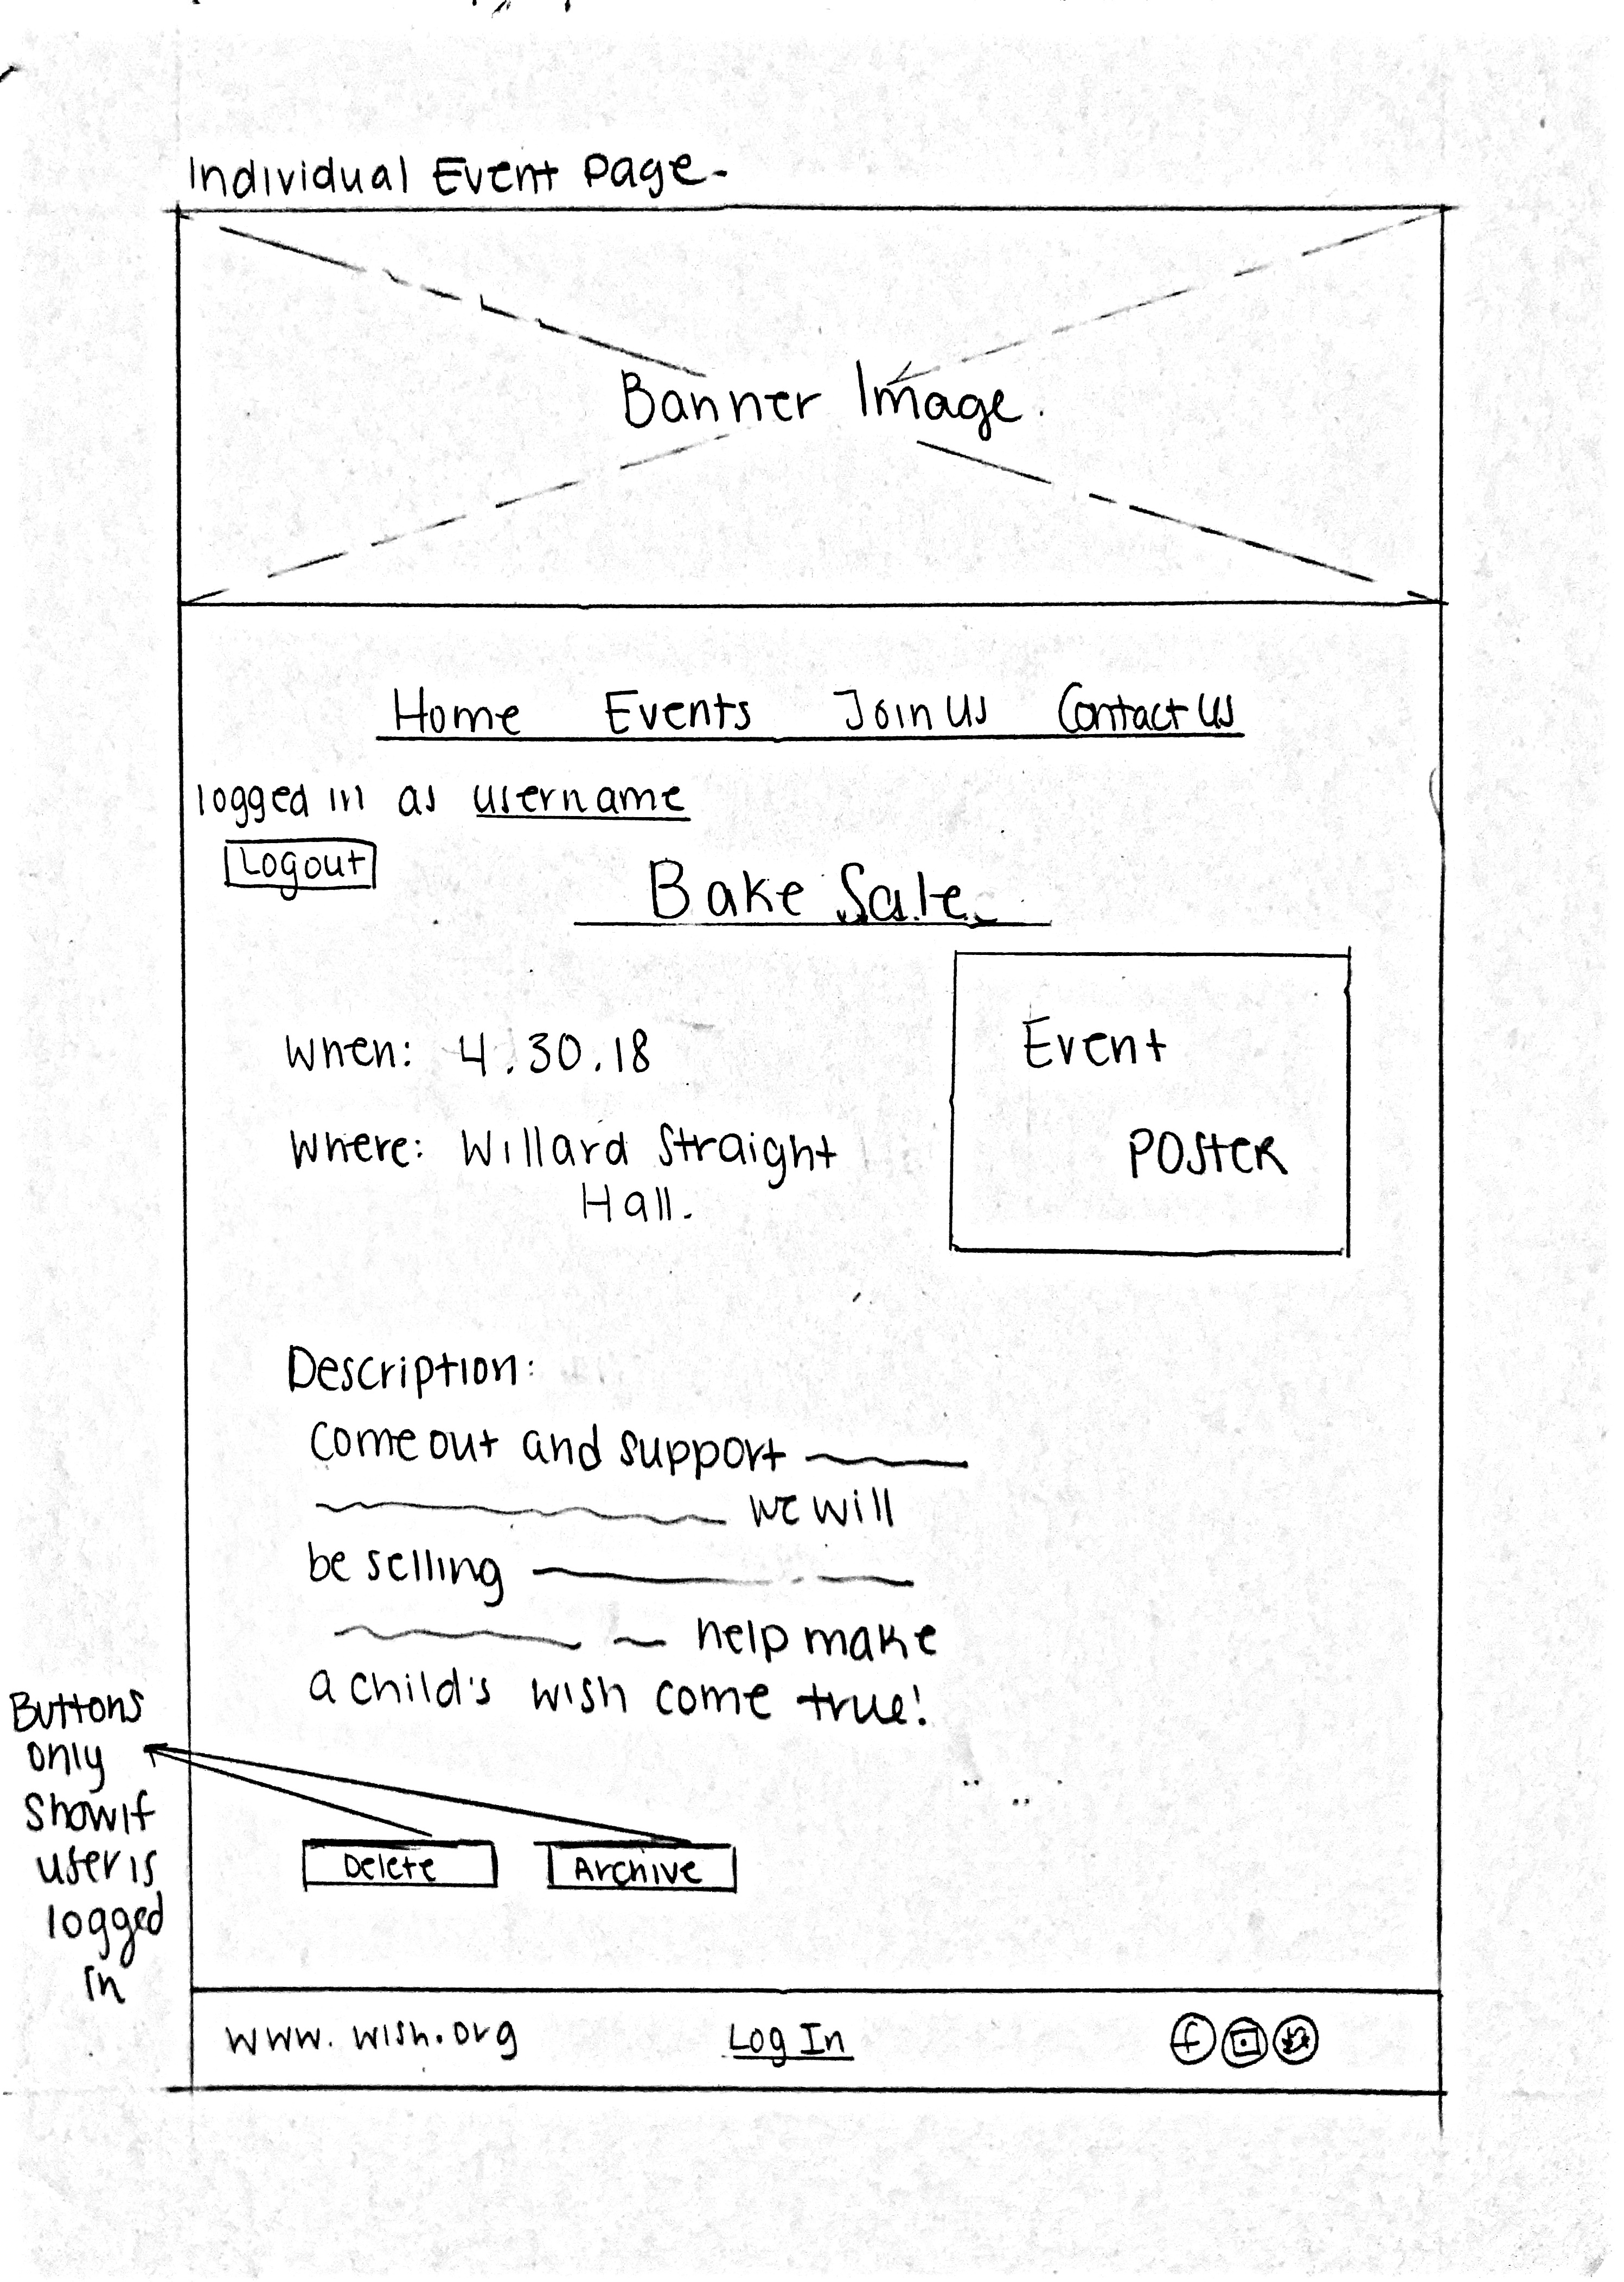 Individual Event Page-
Banner Image.
Home Events Join Us Contact Us
logged in as username
Logout
Bake Sale
When: 4.30.18
Where: Willard Straight
Hall.
Event
Poster
Description:
Come out and support
we will
be selling
help make
a child's wish come true!
Buttons
only
show if
user is
logged
in
Delete Archive
www.wish.org Log In f